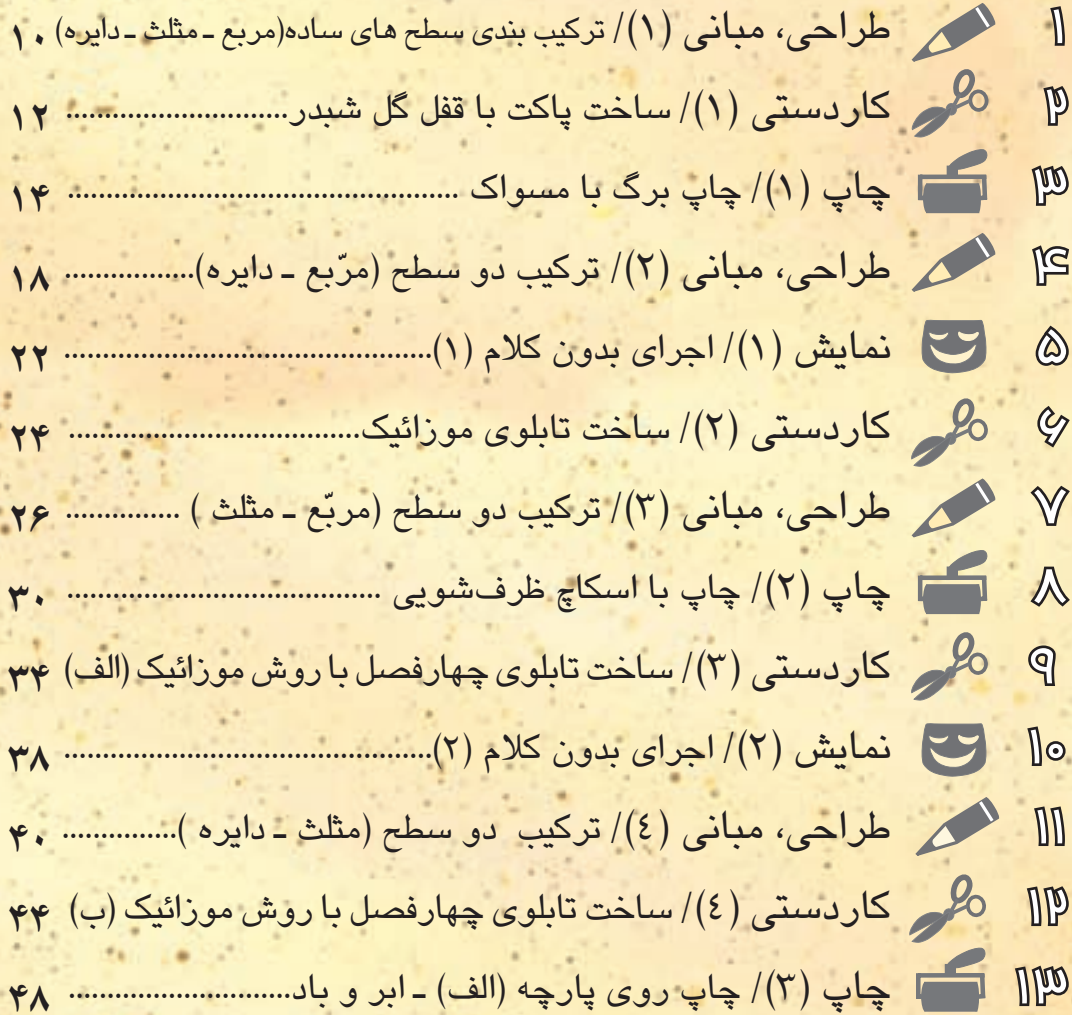 ۱ طراحی، مبانی (۱)/ ترکیب بندی سطح های ساده(مربع ـ مثلث ـ دایره) ۱۰
۲ کاردستی (۱)/ ساخت پاکت با قفل گل شبدر............................. ۱۲
۳ چاپ (۱)/ چاپ برگ با مسواک ................................................... ۱۴
۴ طراحی، مبانی (۲)/ ترکیب دو سطح (مربّع ـ دایره)................. ۱۸
۵ نمایش (۱)/ اجرای بدون کلام (۱)................................................ ۲۲
۶ کاردستی (۲)/ ساخت تابلوی موزائیک...................................... ۲۴
۷ طراحی، مبانی (۳)/ ترکیب دو سطح (مربّع ـ مثلث ) ............... ۲۶
۸ چاپ (۲)/ چاپ با اسکاچ ظرف‌شویی ......................................... ۳۰
۹ کاردستی (۳)/ ساخت تابلوی چهارفصل با روش موزائیک (الف) ۳۴
۱۰ نمایش (۲)/ اجرای بدون کلام (۲)................................................ ۳۸
۱۱ طراحی، مبانی (٤)/ ترکیب دو سطح (مثلث ـ دایره )............... ۴۰
۱۲ کاردستی (٤)/ ساخت تابلوی چهارفصل با روش موزائیک (ب) ۴۴
۱۳ چاپ (۳)/ چاپ روی پارچه (الف) ـ ابر و باد............................. ۴۸